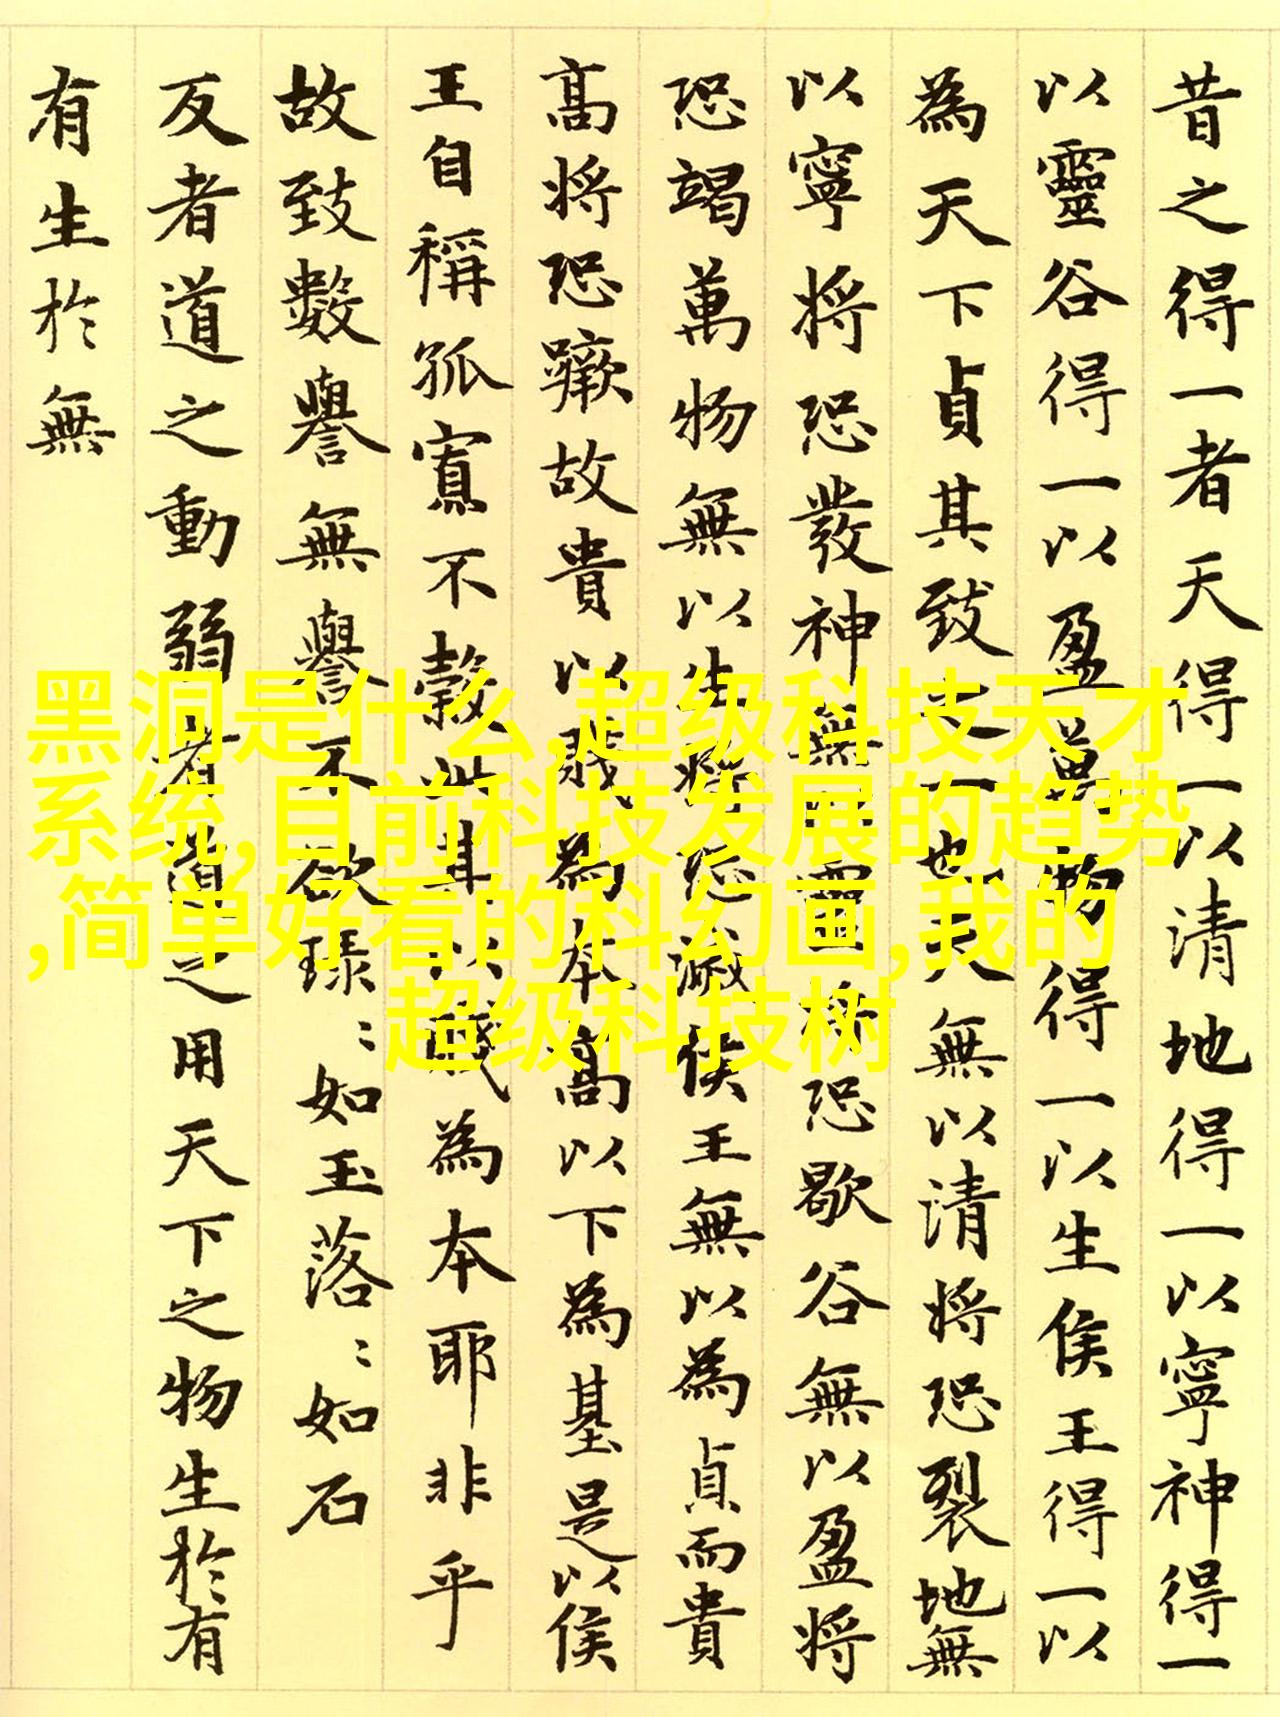 昔之得一者天得一以清地得一以寧神得一
以靈谷得一以盈萬物得一以生侯王得一以
為天下貞其致之一也天無以清将恐裂地無
以寧将恐發神無以靈将恐歇谷無以盈将
恐竭萬物無以生将恐滅侯王無以為貞而貴
高将恐蹶故貴以賤為本高以下為基是以侯
王自稱孤寡不穀此其以賤為本耶非乎
故致數譽無譽不欲琭〻如玉落〻如石
反者道之動弱者道之用天下之物生於有
有生於無
黑洞是什么,超级科技天才
系统,目前科技发展的趋势
,简单好看的科幻画,我的
超级科技树